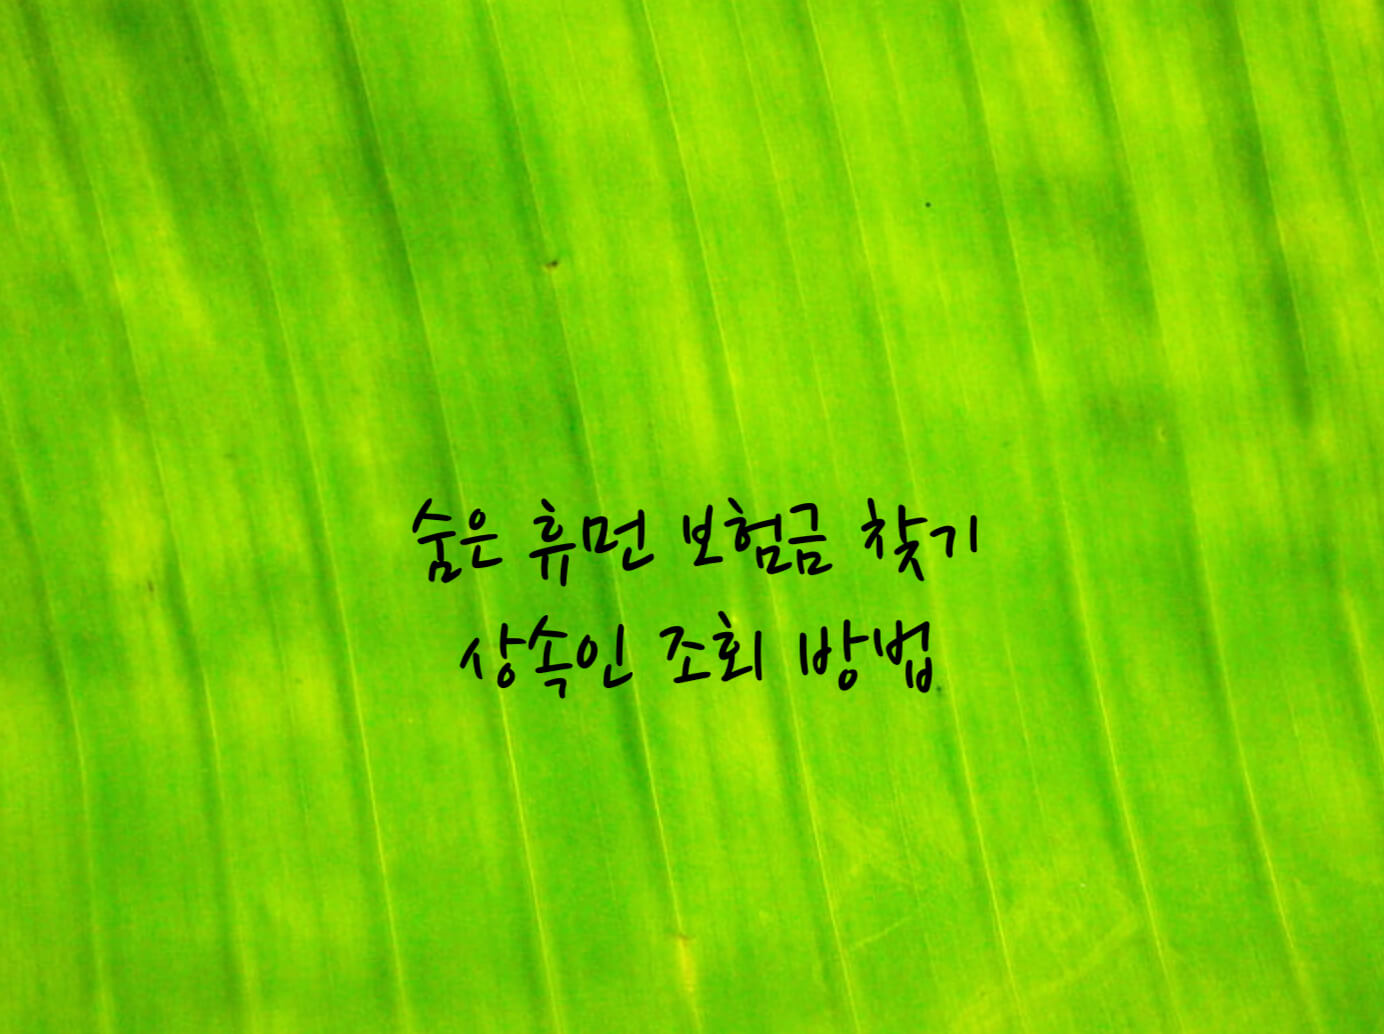 숨은 휴먼 보험금 찾기
상속인 조회 방법